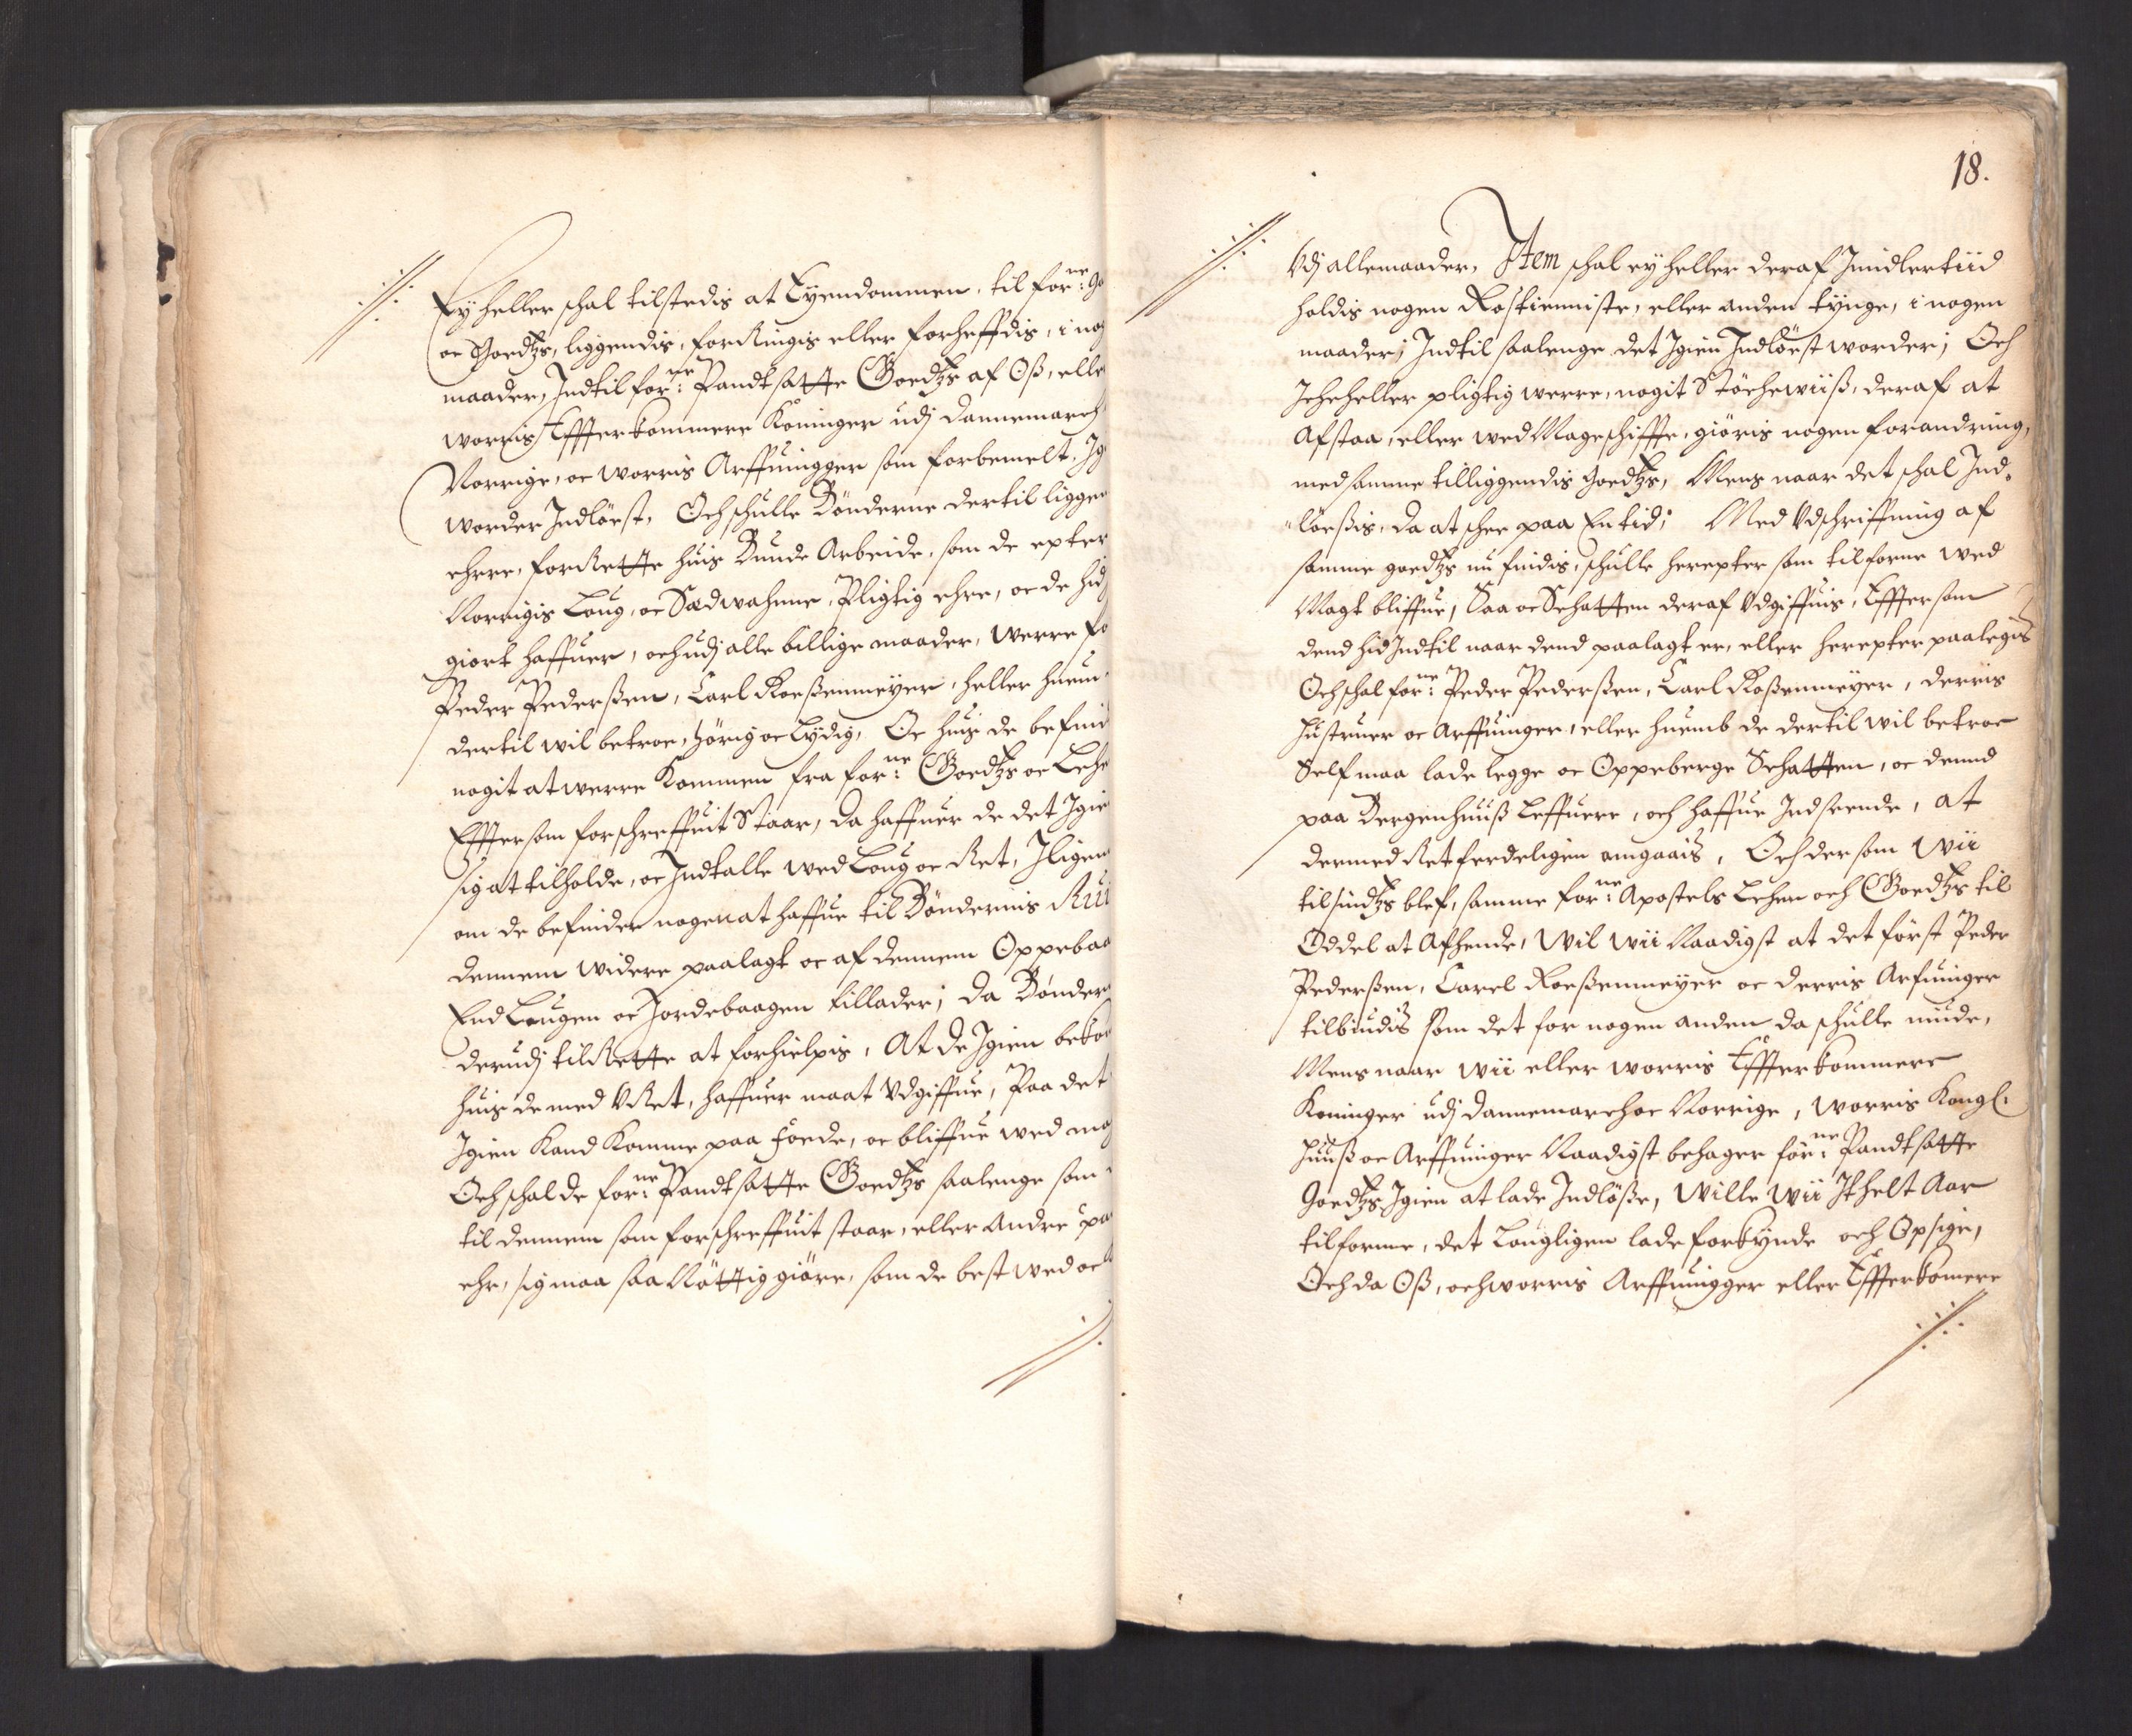 Ey heller schal tilstedis at Eyendommen, til for:ne Go
oc Goedtzs, liggendis, forKlingis eller forheffdis, i nog
maader, Indtil for:ne Pandtsatte Goedtzs af Oß, elle
worris Effterkommere Koninger udj Dannemarch
Norrige, oc worris Arffuingger som forbemelt, Ig
worder Indlöest, Och schulle Bönderne dertil liggen
ehrre, forRette huis Bunde Arbeide, som de epter
Norrigis Loug, oc Sædwahnne, Pligtig ehre, oc de hid
giort haffuer, och udj alle billige maader, werre fo
Peder Pederßen, Carl Roeßenmeyer, heller huem
dertil wil betroe, hörig oc Lydig, Oc huis de befind
nogit at werre Kommen fra for:ne Goedtzs oc Lehe
Efftersom forschreffuit Staar, da haffuer de det Igie
sig at tilholde, oc Indtalle wed Loug oc Ret, Iligem
om de befinder nogen at haffue til Böndernis Rui
dennem widere paalagt oc af dennem Oppebaa
End Lougen oc Jordebaagen tillader; da Bönder
derudj tilRette at forhielpis, At de Igien beko
huis de med VRet, haffuer maat Vdgiffue, Paa det
Igien Kand Komme paa foede, oc bliffue wed mag
Och schal de for:ne Pandtsatte Goedtzs saalenge som
til dennem som forschreffuit staar, eller andre pa
ehr, sig maa saa Nöttig giöre, som de best wed oc
18.
Vdj allemaader, Item schal ey heller deraf Imidlertiid
holdis nogen Rostienniste, eller anden tynge, i nogen
maader; Indtil saalenge det Igien Indlöest worder; Och
Icheheller pligtig werre, nogit Stöchewiiß, deraf at
Afstaa, eller wed Mageschiffte, giöris nogen forandring,
med samme tilliggendis Goedtzs, Mens naar det schal Ind-
löeßis, da at schee paa En tid; Med Vdschriffning af
samme goedtzs nu findis, schulle herepter som tilforne wed
Magt bliffue, Saa oc Schatten deraf Vdgiffuis, Efftersom
dend hid Indtil naar dend paalagt er, eller herepter paalegis
Och schal for:ne Peder Pederßen, Carl Roßenmeyer, derris
Hustruer oc Arffuinger, eller huemb de dertil wil betroe
Self maa lade legge oc Oppeberge Schatten, oc dennd
paa Bergenhuuß Leffuere, och haffue Indseende, at
dermed Retferdeligen omgaais, Och dersom Wii
tilsindtzs blef, samme for:ne Apostels Lehen och Goedtzs til
Oddel at Afhende, Wil Wii Naadigst at det först Peder
Pederßen, Carel Roeßenmeyer oc derris Arfuinger
tilbiudis som det for nogen anden da schulle niude,
Mens naar wii eller worris Effterkommere
Koninger udj Dannemarch oc Norrige, worris Kongl:
Huuß oc Arffuinger Naadigst behager for:ne Pandtsatte
Goedtzs Igien at lade Indlöße, Wille Wii It helt Aar
tilforne, det Lougligen lade forkynde och Opsige,
Och da Oß, och worris Arffuingger eller Effterkomere